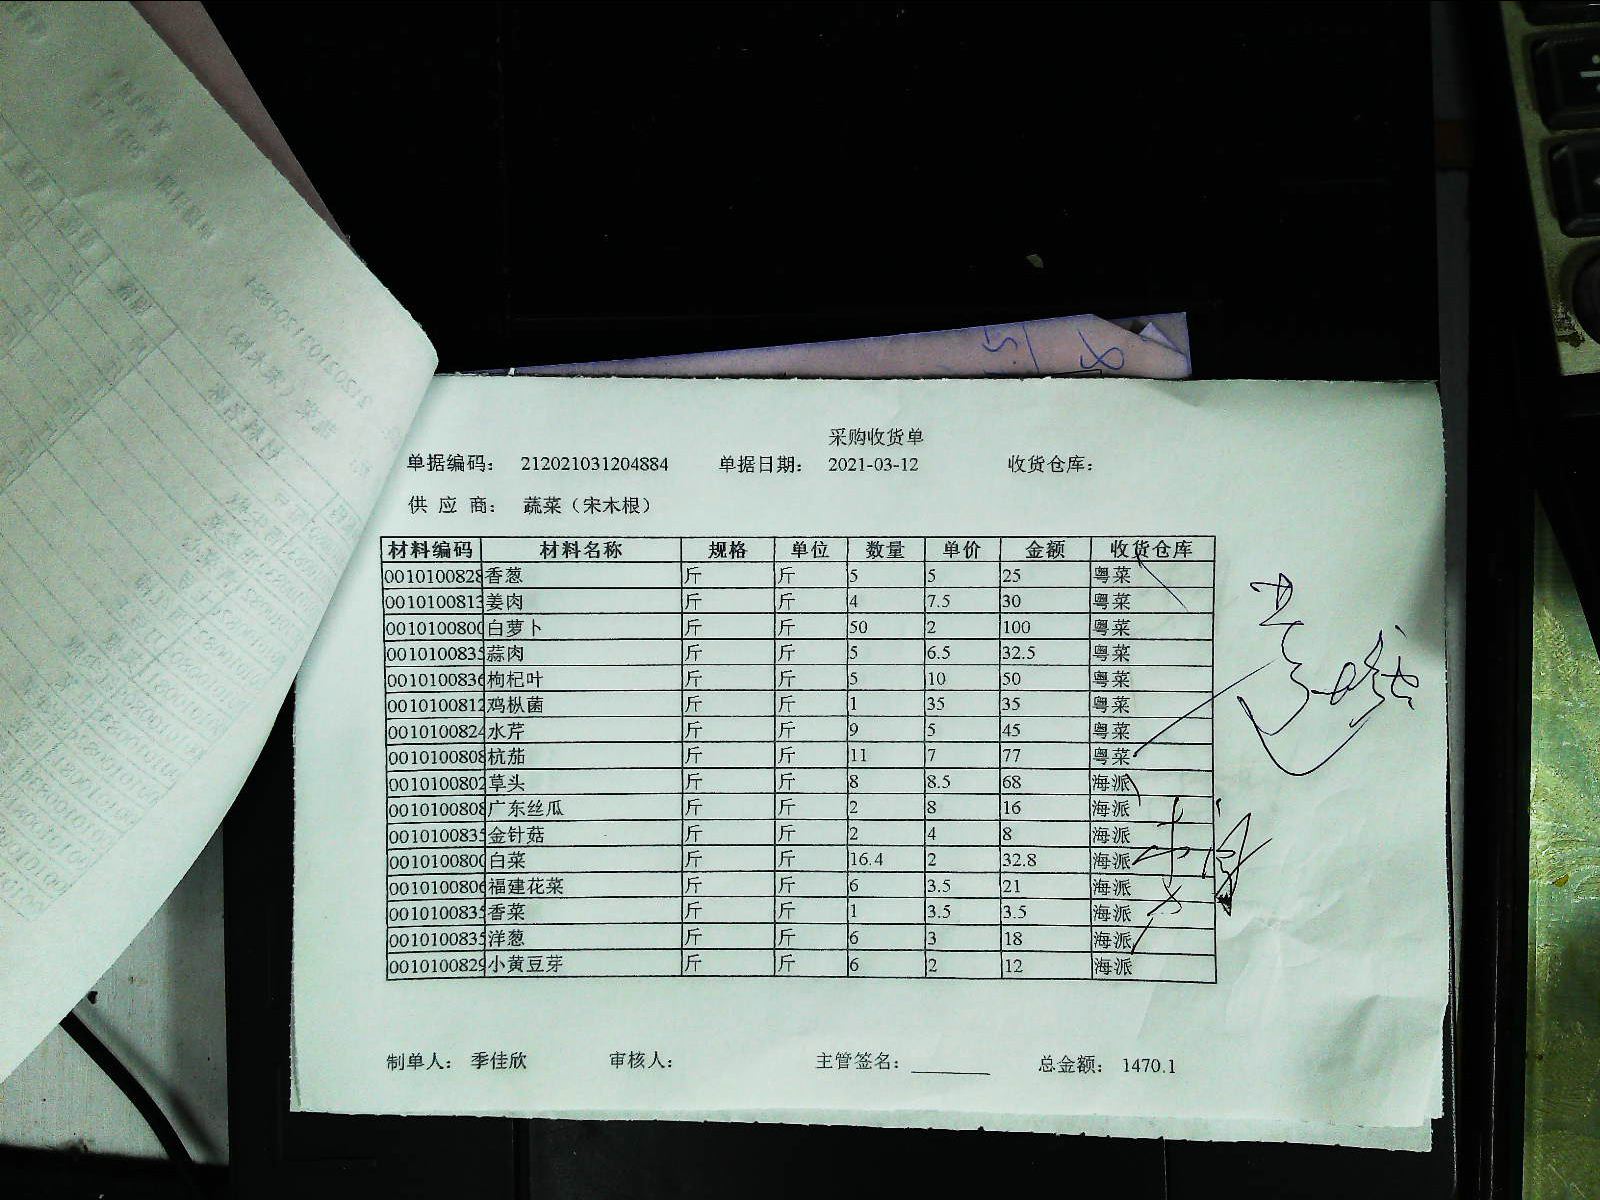 采购收货单
单据编码： 212021031204884 单据日期： 2021-03-12 收货仓库：
供 应 商： 蔬菜（宋木根）
材料编码 材料名称 规格 单位 数量 单价 金额 收货仓库
0010100828 香葱 斤 斤 5 5 25 粤菜
0010100813 姜肉 斤 斤 4 7.5 30 粤菜
0010100800 白萝卜 斤 斤 50 2 100 粤菜
0010100835 蒜肉 斤 斤 5 6.5 32.5 粤菜
0010100836 枸杞叶 斤 斤 5 10 50 粤菜
0010100812 鸡枞菌 斤 斤 1 35 35 粤菜
0010100824 水芹 斤 斤 9 5 45 粤菜
0010100808 杭茄 斤 斤 11 7 77 粤菜
0010100802 草头 斤 斤 8 8.5 68 海派
0010100808 广东丝瓜 斤 斤 2 8 16 海派
0010100835 金针菇 斤 斤 2 4 8 海派
0010100800 白菜 斤 斤 16.4 2 32.8 海派
0010100806 福建花菜 斤 斤 6 3.5 21 海派
0010100835 香菜 斤 斤 1 3.5 3.5 海派
0010100835 洋葱 斤 斤 6 3 18 海派
0010100829 小黄豆芽 斤 斤 6 2 12 海派
制单人： 季佳欣 审核人： 主管签名： 总金额： 1470.1